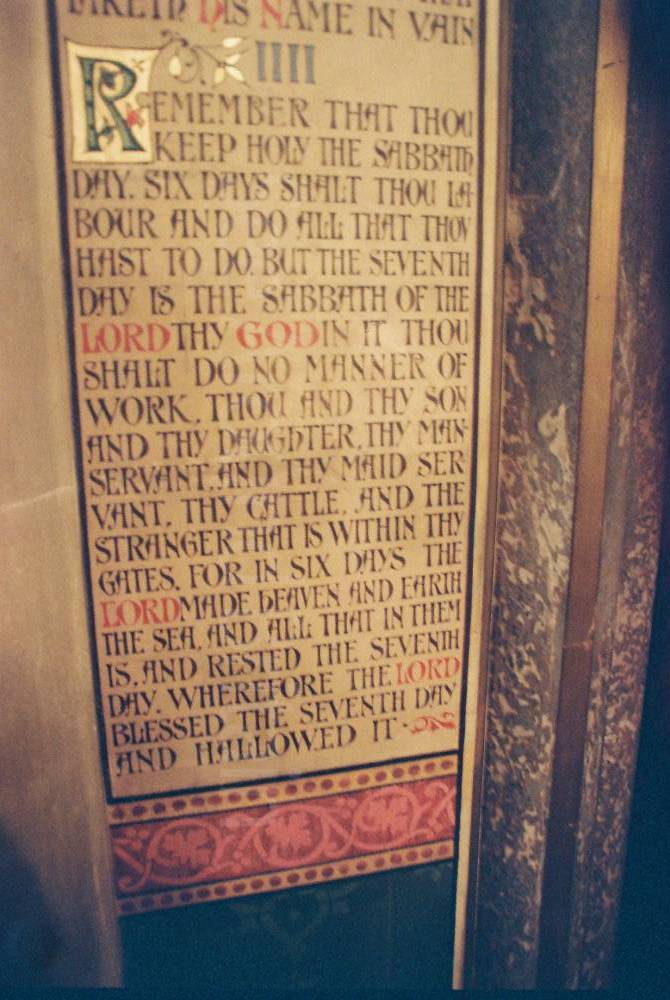 TAKETH HIS NAME IN VAIN
IIII
REMEMBER THAT THOU
KEEP HOLY THE SABBATH
DAY. SIX DAYS SHALT THOU LA-
BOUR AND DO ALL THAT THOU
HAST TO DO. BUT THE SEVENTH
DAY IS THE SABBATH OF THE
LORD THY GOD IN IT THOU
SHALT DO NO MANNER OF
WORK, THOU AND THY SON
AND THY DAUGHTER, THY MAN-
SERVANT, AND THY MAID SER
VANT, THY CATTLE, AND THE
STRANGER THAT IS WITHIN THY
GATES. FOR IN SIX DAYS THE
LORD MADE HEAVEN AND EARTH
THE SEA, AND ALL THAT IN THEM
IS, AND RESTED THE SEVENTH
DAY. WHEREFORE THE LORD
BLESSED THE SEVENTH DAY
AND HALLOWED IT